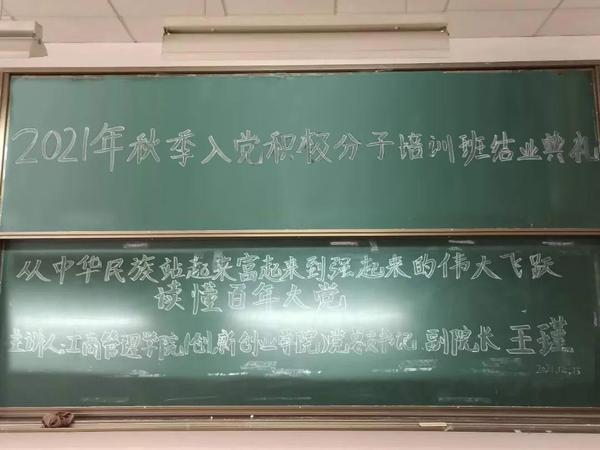 2021年秋季入党积极分子培训班结业典礼
从中华民族站起来富起来到强起来的伟大飞跃
读懂百年大党
主讲人:工商管理学院(创新创业学院)党总支书记、副院长 王瑾
2021.12.15